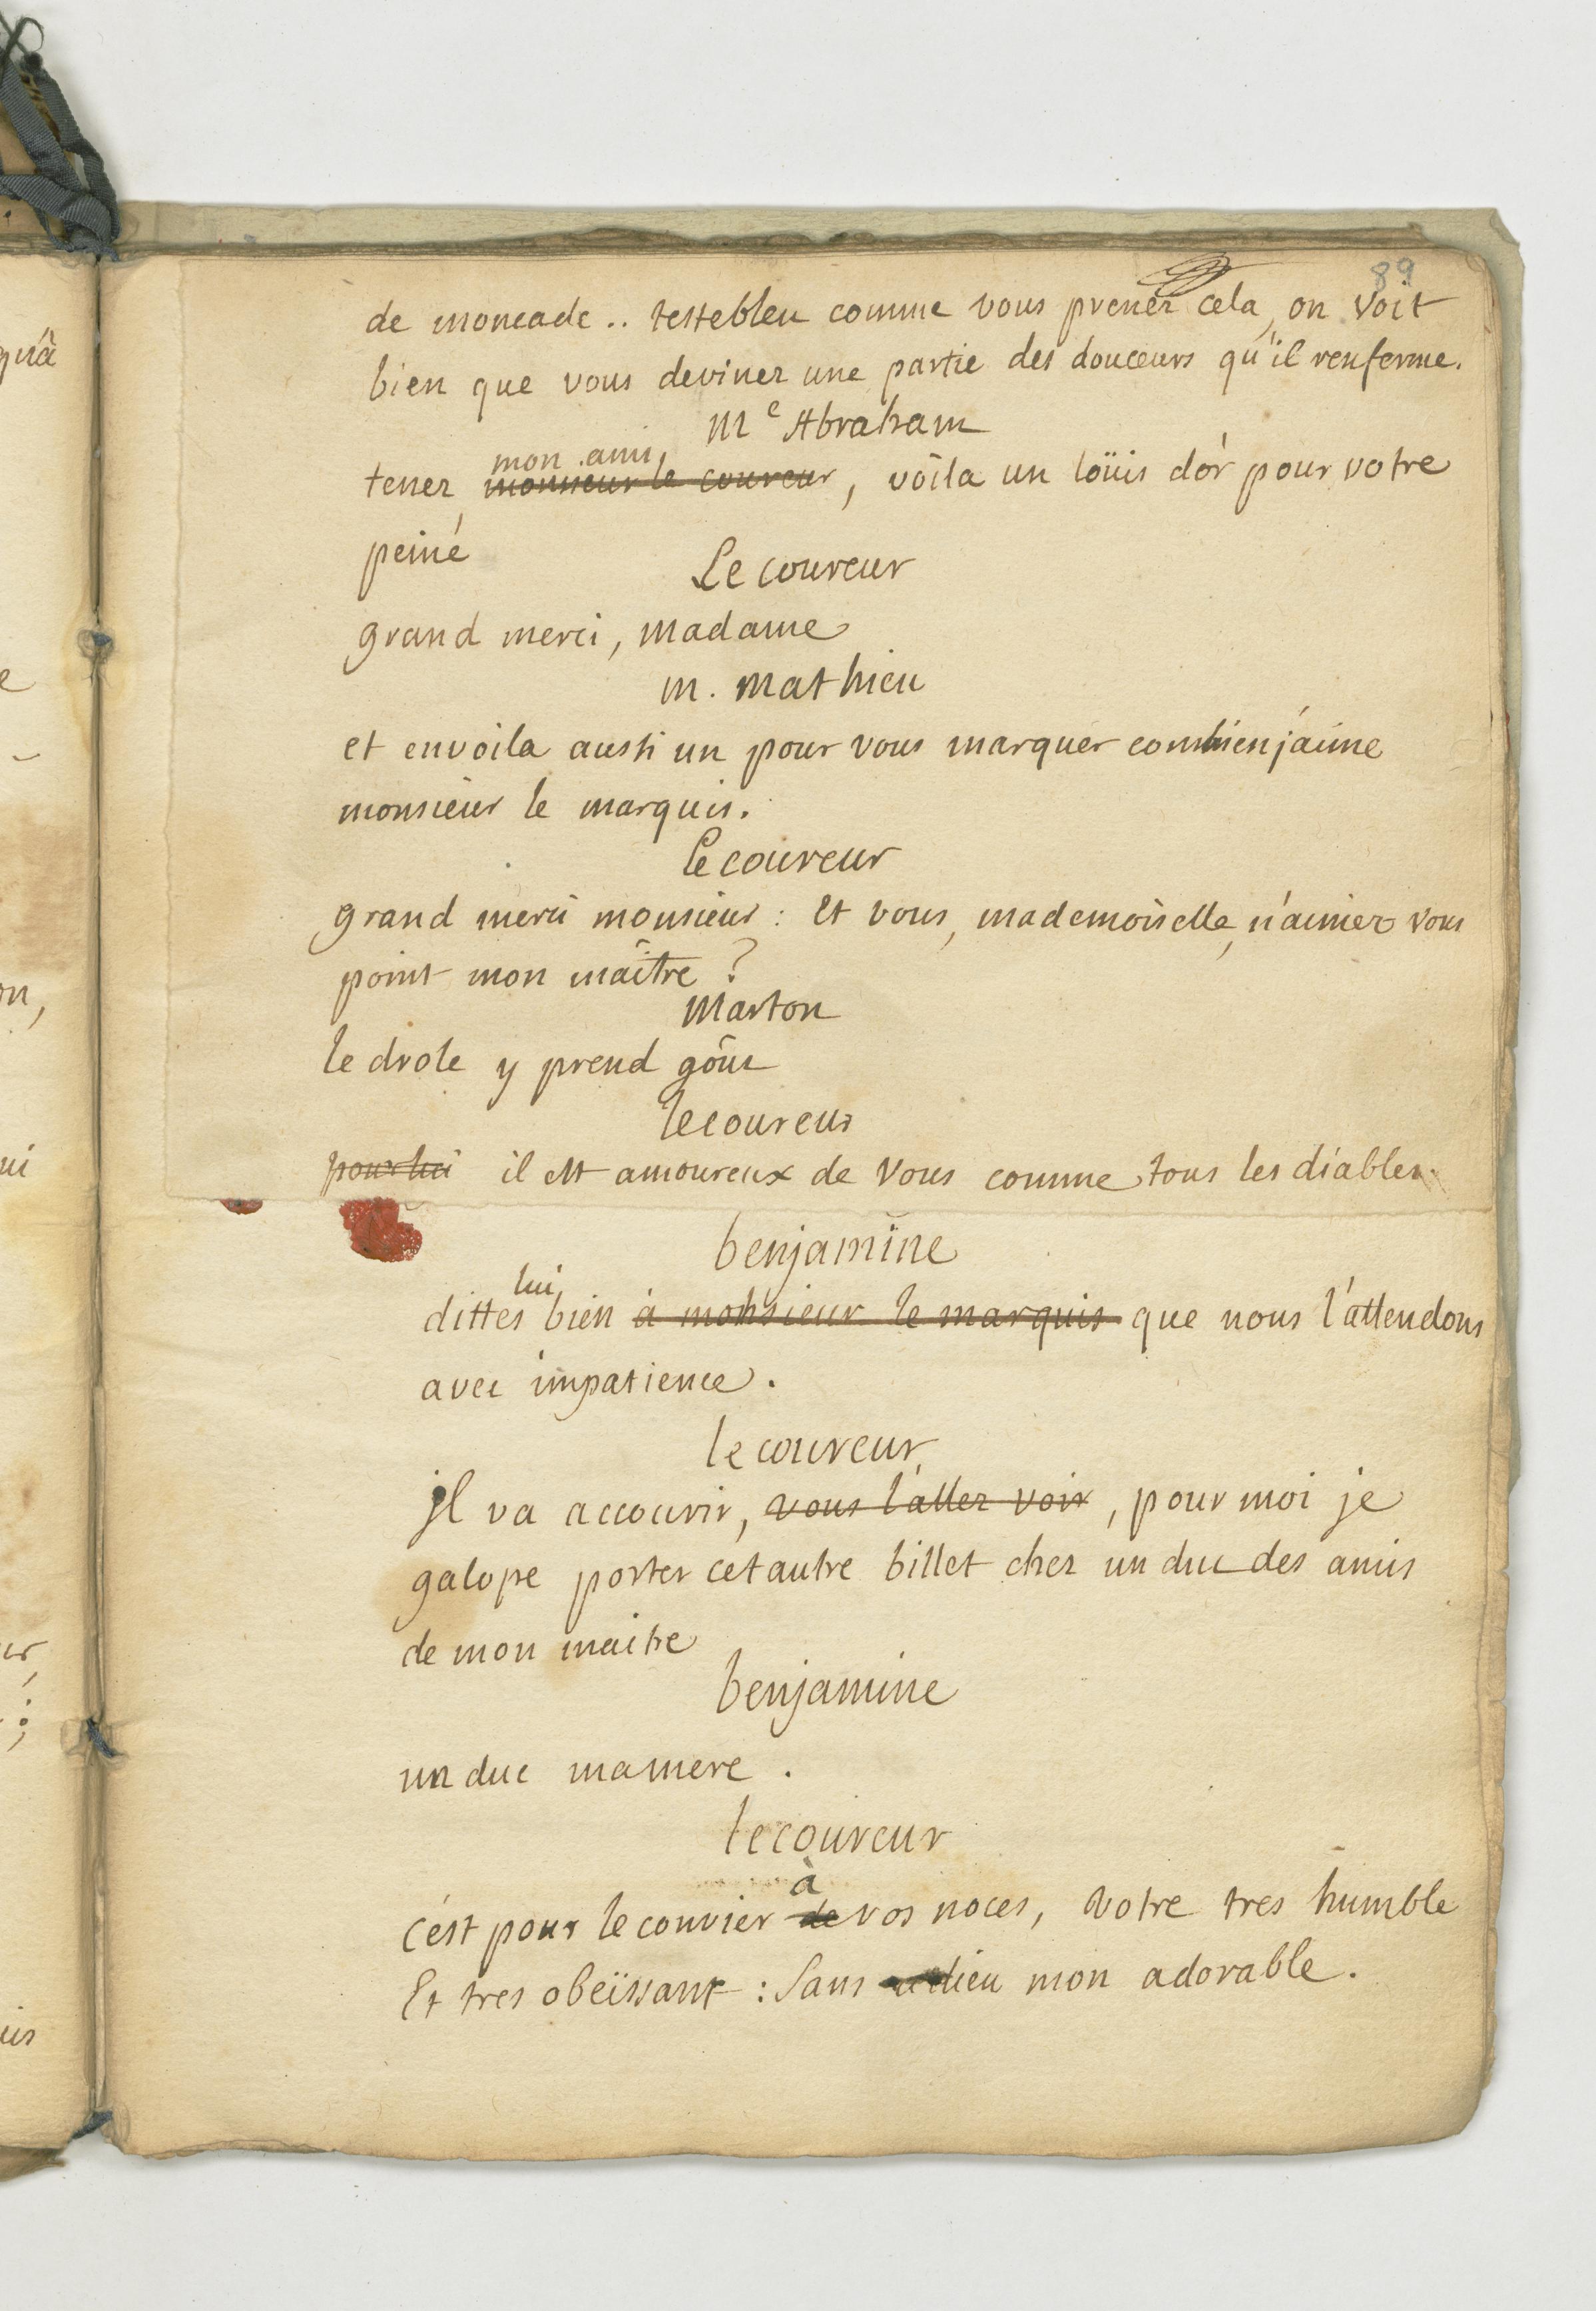 89
de moncade.. testebleu comme vous prenez cela, on voit
bien que vous devinez une partie des douceurs qu'il renferme.
Me Abraham
mon ami,
tenez monsieur le coureur, voila un loüis d'or pour votre
peine
Le coureur
grand merci, madame
m. mathieu
et en voila aussi un pour vous marquer combien j'aime
monsieur le marquis.
Le coureur
grand merci monsieur : et vous, mademoiselle, n'aimez vous
point mon maître ?
Marton
le drole y prend goût
le coureur
pour lui il est amoureux de vous comme tous les diables.
benjamine
lui
dittes bien à monsieur le marquis que nous l'attendons
avec impatience.
le coureur
il va accourir, vous l'allez voir, pour moi je
galope porter cet autre billet chez un duc des amis
de mon maitre
benjamine
un duc ma mere.
le coureur
à
c'est pour le convier de vos noces, votre tres humble
Et tres obeïssant : sans adieu mon adorable.